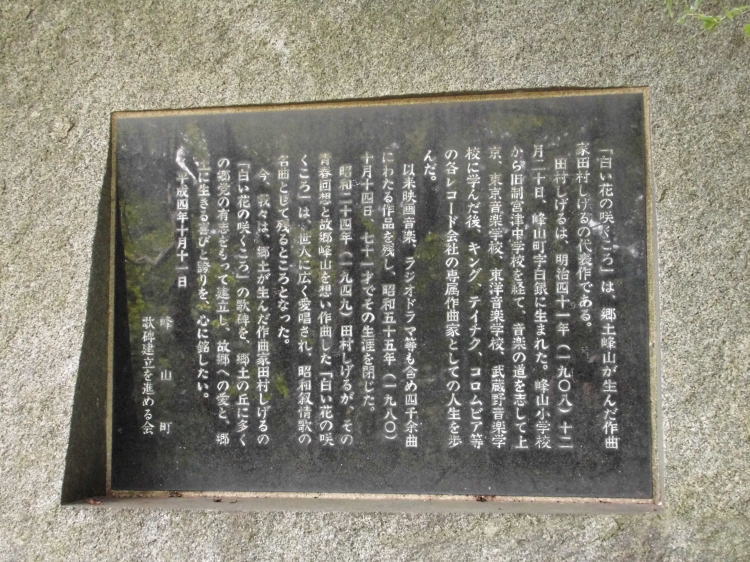 「白い花の咲くころ」は、郷土峰山が生んだ作曲
家田村しげるの代表作である。
田村しげるは、明治四十一年（一九〇八）十二
月二十日、峰山町字白銀に生まれた。峰山小学校
から旧制宮津中学校を経て、音楽の道を志して上
京、東京音楽学校、東洋音楽学校、武蔵野音楽学
校に学んだ後、キング、テイチク、コロムビア等
の各レコード会社の専属作曲家としての人生を歩
んだ。
以来映画音楽、ラジオドラマ等も含め四千余曲
にわたる作品を残し、昭和五十五年（一九八〇）
十月十四日、七十一才でその生涯を閉じた。
昭和二十四年（一九四九）田村しげるが、その
青春回想と故郷峰山を想い作曲した「白い花の咲
くころ」は、世人に広く愛唱され、昭和叙情歌の
名曲として残るところとなった。
今、我々は、郷土が生んだ作曲家田村しげるの
「白い花の咲くころ」の歌碑を、郷土の丘に多く
の郷党の有志をもって建立し、故郷への愛と、郷
土に生きる喜びと誇りを、心に銘したい。
平成四年十月十一日
峰山町
歌碑建立を進める会